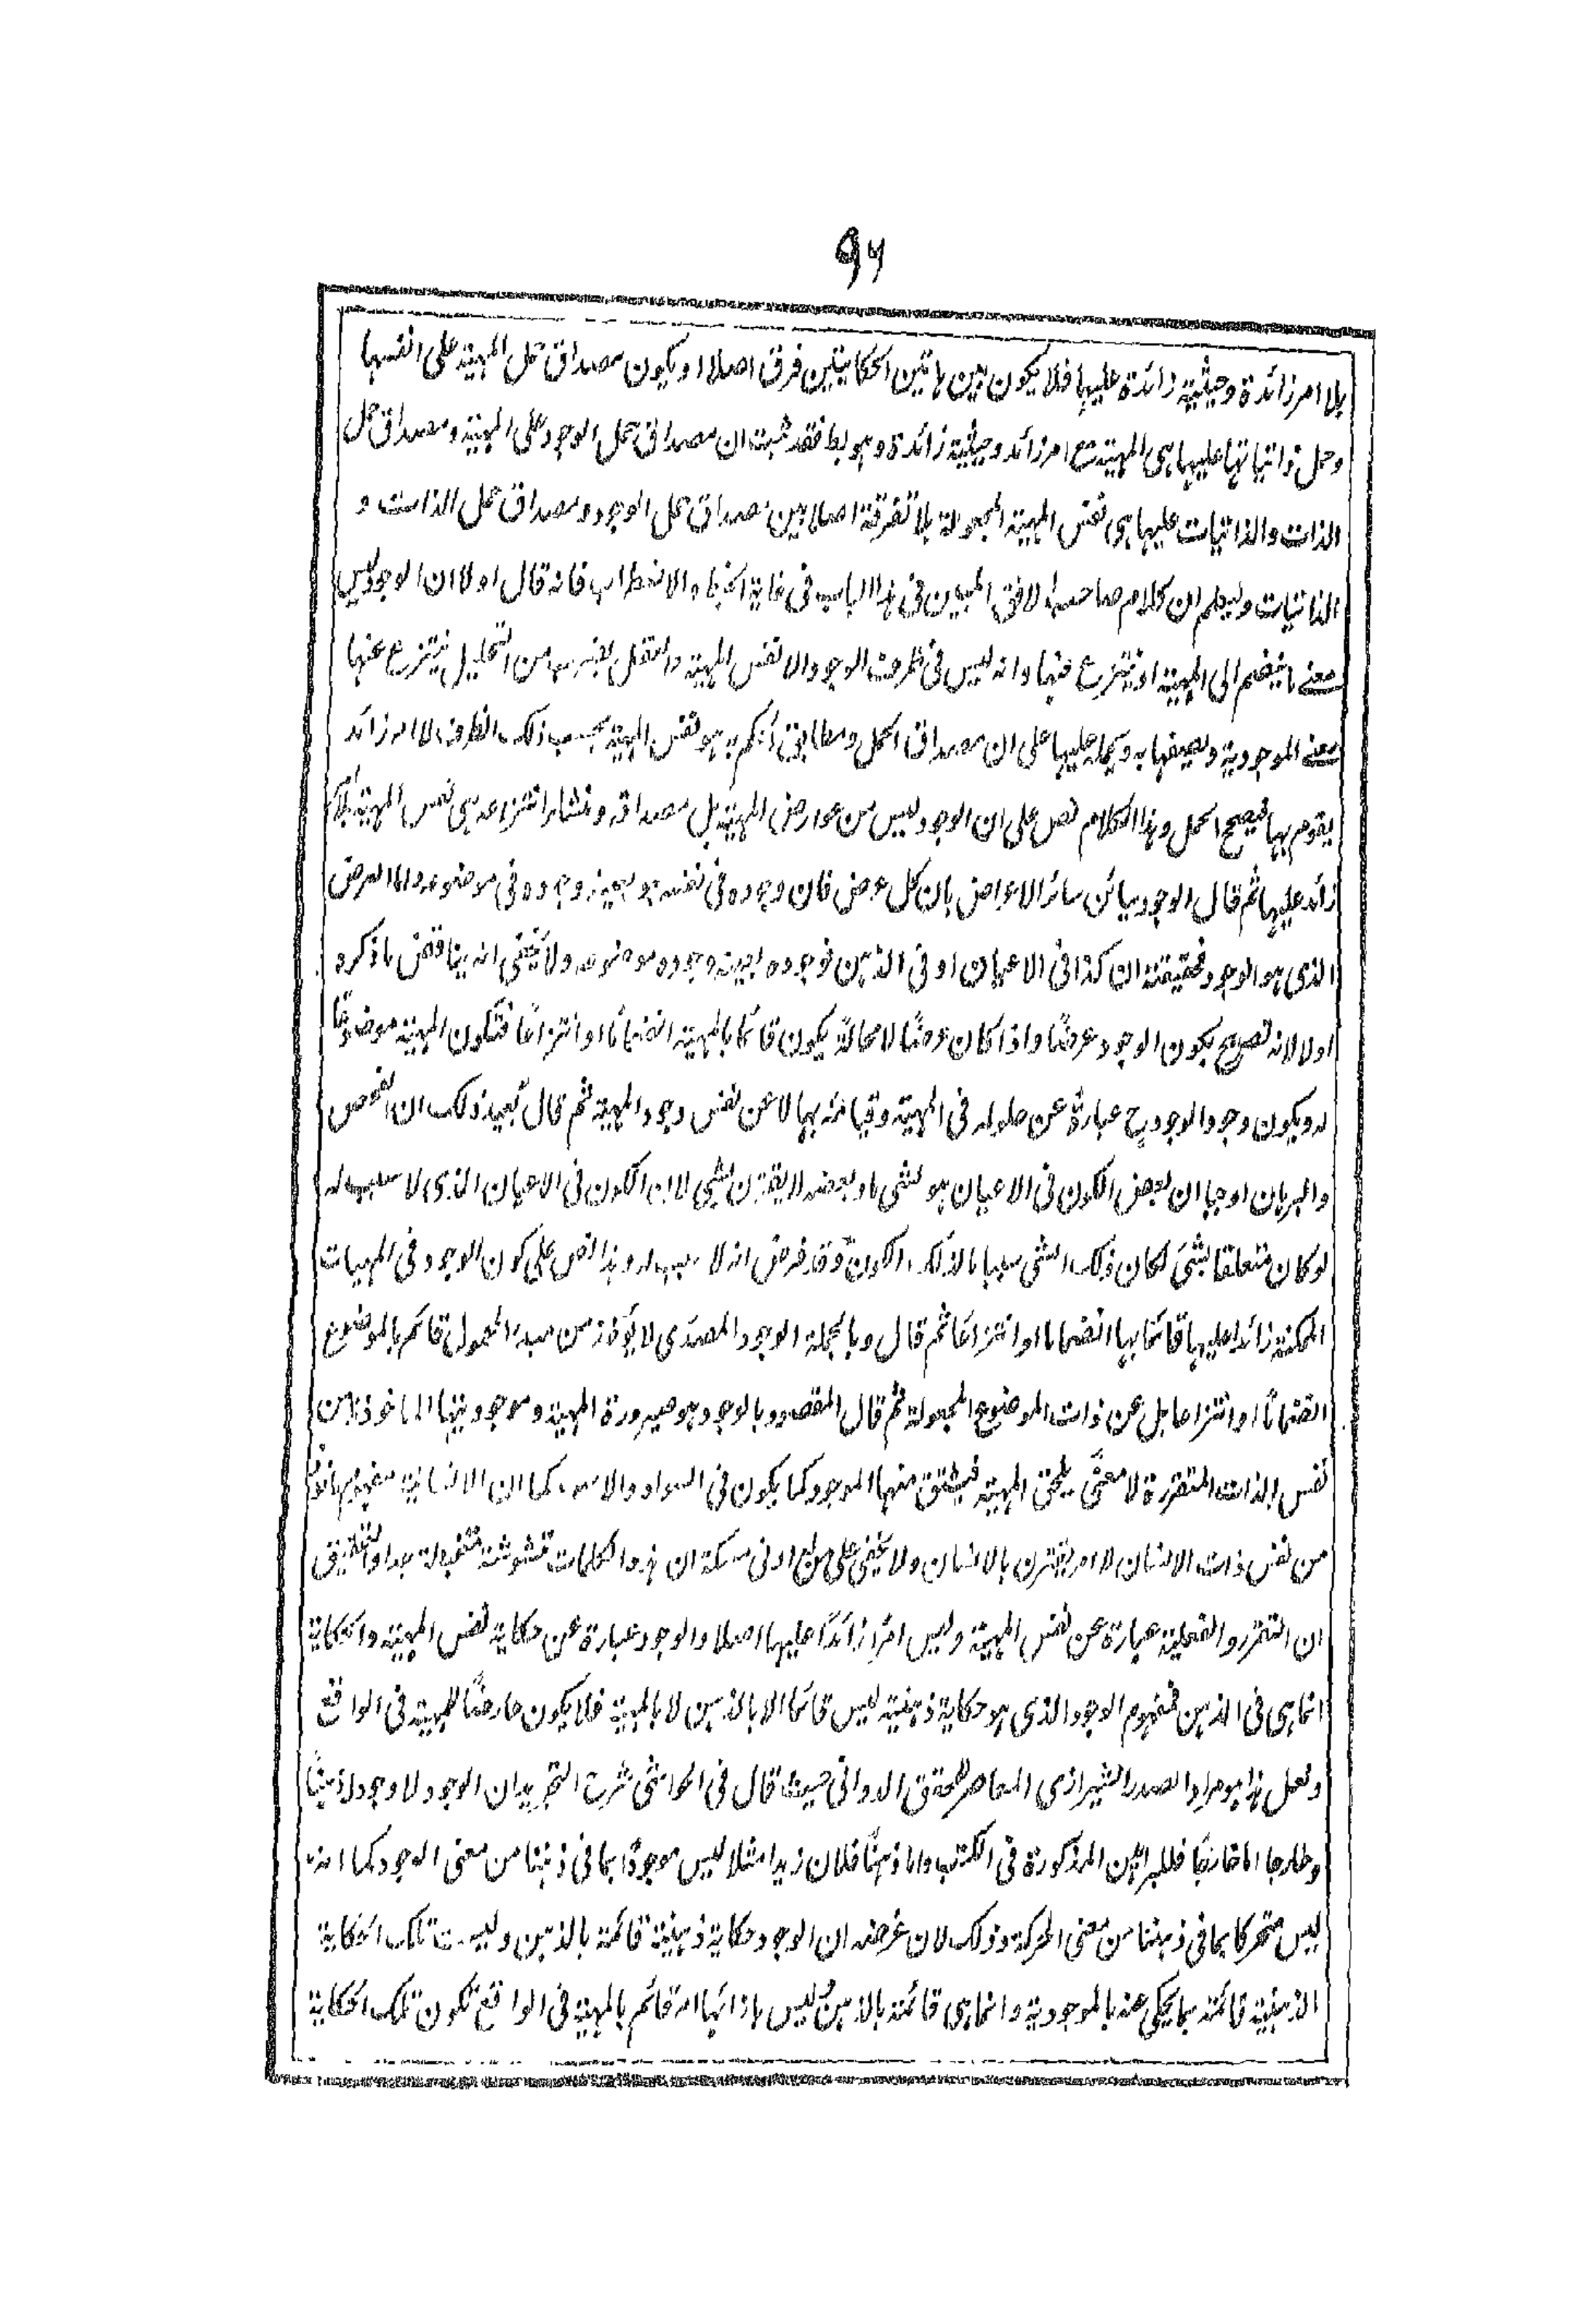 ٩٦
بلا امر زائدة وحيثية زائدة عليها فلا يكون بين هاتين الحكايتين فرق اصلا او يكون مصداق حمل المهية على انفسها
وحمل ذاتياتها عليها هى المهية مع امر زائد وحيثية زائدة وهو بط فقد ثبت ان مصداق حمل الوجود على المهية ومصداق حمل
الذات والذاتيات عليها هى نفس المهية المجعولة بلا تفرقة اصلا بين مصداق حمل الوجود ومصداق حمل الذات و
الذاتيات وليعلم ان كلام صاحب الافق المبين فى هذا الباب فى غاية الخفاء والاضطراب فانه قال اولا ان الوجود ليس
معنے ما ينضم الى المهية او ينتزع عنها وانه ليس فى ظرف الوجود الا نفس المهية والعقل بضرب من التحليل ينتزع عنها
معنے الموجودية ويصفها به ويحمله عليها على ان مصداق الحمل ومطابق الحكم به هو نفس المهية بحسب ذلك الظرف لا امر زائد
يقوم بها فيصح الحمل وهذا الكلام نص على ان الوجود ليس من عوارض المهية بل مصداقه ومنشاء انتزاعه هى نفس المهية بلا امر
زائد عليها ثم قال الوجود يبائن سائر الاعراض بان كل عرض فان وجوده فى نفسه هو بعينه وجوده فى موضوعه واما العرض
الذى هو الوجود فحقيقته ان كذا فى الاعيان او فى الذهن فوجوده بعينه وجود موضوعه ولا يخفى انه يناقض ما ذكره
اولا لانه تصريح بكون الوجود عرضًا واذا كان عرضًا لا محالة يكون قائما بالمهية انضمامًا او انتزاعًا فتكون المهية موضوعًا
له ويكون وجود الوجود ح عبارة عن حلوله فى المهية وقيامه بها لا عن نفس وجود المهية ثم قال بُعيد ذلك ان الفحص
والبرهان اوجبا ان بعض الكون فى الاعيان هو لشى ما وبعضه لا يقترن بشى لان الكون فى الاعيان الذى لا سبب له
لو كان متعلقا بشئ لكان ذلك الشى سببا ما لذلك الكون وقد فرض انه لا سبب له وهذا نص على كون الوجود فى المهيات
الممكنة زائدا عليها قائما بها انضماما او انتزاعًا ثم قال وبالجملة الوجود المصدرى لا يؤخذ من مبدء المحمول قائم بالموضوع
انضمامًا او انتزاعا بل عن ذات الموضوع المجعولة ثم قال المقصود بالوجود هو صيرورة المهية وموجوديتها الماخوذة من
نفس الذات المتقررة لا معنًى يلحق المهية فيشتق منها الموجود كما يكون فى السواد والاسود كما ان الانسانية مفهوم ماخوذ
من نفس ذات الانسان لا امر يقترن بالانسان ولا يخفى على من له ادنى مسكة ان هذه الكلمات مشوشة مختلة جدا والتحقيق
ان التقرر والفعلية عبارة عن نفس المهية وليس امرًا زائدًا عليها اصلا والوجود عبارة عن حكاية نفس المهية والحكاية
انما هى فى الذهن فمفهوم الوجود الذى هو حكاية ذهنية ليس قائما الا بالذهن لا بالمهية فلا يكون عارضًا للمهية فى الواقع
ولعل هذا هو مراد الصدر الشيرازى المعاصر للمحقق الدوانى حيث قال فى الحواشى شرح التجريد ان الوجود لا وجود له ذهنًا
وخارجا اما خارجًا فللبراهين المذكورة فى الكتب واما ذهنًا فلان زيدا مثلا ليس موجودًا بما فى ذهننا من معنى الوجود كما انه
ليس متحركا بما فى ذهننا من معنى الحركة وذلك لان غرضه ان الوجود حكاية ذهنية قائمة بالذهن وليست تلك الحكاية
الذهنية قائمة بما يحكى عنه بالموجودية وانما هى قائمة بالذهن وليس بازائها امر قائم بالمهية فى الواقع تكون تلك الحكاية